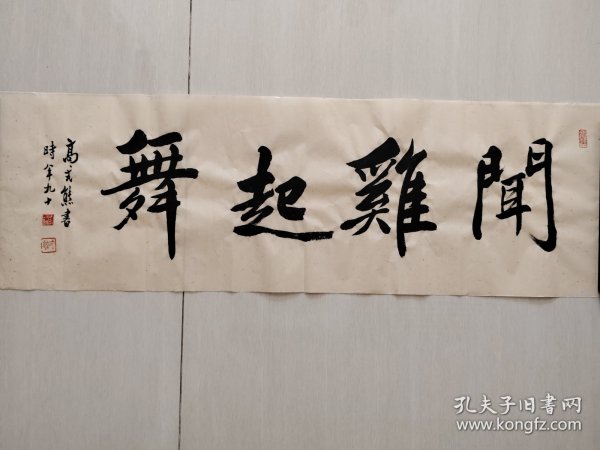 聞雞起舞
高式熊書
時年九十
孔夫子旧书网
www.kongfz.com